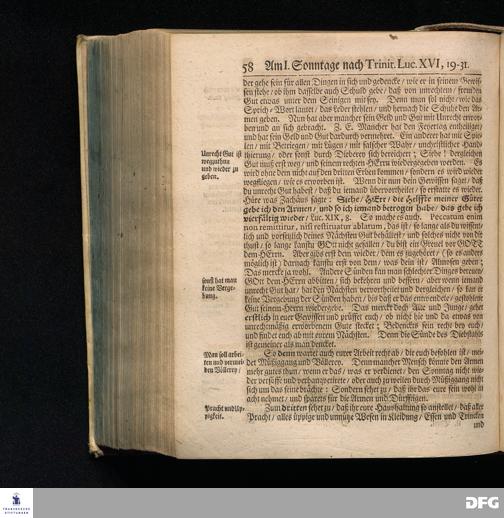 58 Am I. Sonntage nach Trinit. Luc. XVI, 19-31.
der gehe sein für allen Dingen in sich und gedencke/ wie er in seinem Gewis-
sen stehe/ ob ihm dasselbe auch Schuld gebe/ daß von unrechtem/ fremden
Gut etwas unter dem Seinigen mit sey. Denn man sol nicht/ wie das
Sprich-Wort lautet/ das Leder stehlen/ und hernach die Schuhe den Ar-
men geben. Nun hat aber mancher sein Geld und Gut mit Unrecht erwor-
ben und an sich gebracht. Z. E. Mancher hat den Feyertag entheiliget/
und hat sein Geld und Gut dardurch vermehret. Ein anderer hat mit Spie-
len/ mit Betriegen/ mit Lügen/ mit falscher Wahr/ unchristlicher Hand-
thierung/ oder sonst durch Dieberey sich bereichert; Siehe! dergleichen
Gut muß erst weg/ und seinem rechten HErrn wiedergegeben werden. Es
wird ohne dem nicht auf den dritten Erben kommen/ sondern es wird wieder
wegfliegen/ wie es erworben ist. Wenn dir nun dein Gewissen saget/ daß
du unrecht Gut habest/ daß du iemand übervortheilet/ so erstatte es wieder.
Höre was Zachäus sagte: Siehe/ HErr/ die Helffte meiner Güter
gebe ich den Armen/ und so ich iemand betrogen habe/ das gebe ich
vierfältig wieder/ Luc. XIX, 8. So mache es auch. Peccatum enim
non remittitur, nisi restituatur ablatum, das ist/ so lange als du wissent-
lich und vorsetzlich deines Nächsten Gut behältest/ und solches nicht von dir
thust/ so lange kanstu GOtt nicht gefallen/ du bist ein Greuel vor GOTT
dem HErrn. Aber gibs erst dem wieder/ dem es zugehöret/ (so es anders
möglich ist) darnach kanstu erst von dem/ was dein ist/ Allmosen geben;
Das mercke ja wohl. Andere Sünden kan man schlechter Dinges bereuen/
GOtt dem HErrn abbitten/ sich bekehren und bessern/ aber wenn iemand
unrecht Gut hat/ hat den Nächsten vervortheilet und dergleichen/ so kan er
keine Vergebung der Sünden haben/ bis daß er das entwendete/ gestohlene
Gut seinem Herrn wiedergebe. Das merckt doch Alte und Junge/ gehet
erstlich in euer Gewissen und prüffet euch/ ob nicht hie und da etwas von
unrechtmäßig erworbenem Gute stecket; Bedenckts sein recht bey euch/
und findet euch ab mit eurem Nächsten. Denn die Sünde des Diebstahls
ist gemeiner als man dencket.
So denn wartet auch eurer Arbeit recht ab/ die euch befohlen ist/ mei-
det Müßiggang und Völlerey. Denn mancher Mensch könnte den Armen
mehr gutes thun/ wenn er das/ was er verdienet/ den Sonntag nicht wie-
der versöffe und verbanqvetirete/ oder auch zu weilen durch Müßiggang nicht
sich um das seine brächte: Sondern sehet zu/ daß ihr das eure sein wohl in
acht nehmet/ und sparets für die Armen und Dürfftigen.
Zum dritten sehet zu/ daß ihr eure Haushaltung so anstellet/ daß aller
Pracht/ alles üppige und unnütze Wesen in Kleidung/ Essen und Trincken
und
Unrecht Gut ist
wegzuthun
und wieder zu
geben.
sonst hat man
keine Verge-
bung.
Man soll arbei-
ten und vermei-
den Völlerey/
Pracht und Üp-
pigkeit.
FRANCKESCHE
STIFTUNGEN
DFG